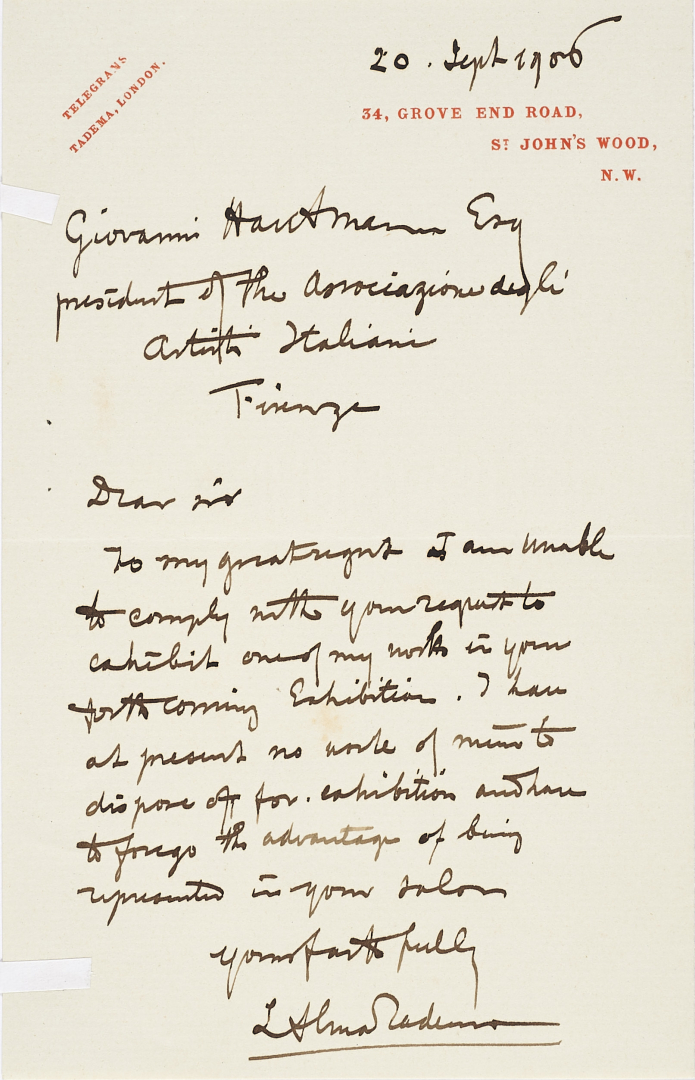 TELEGRAMS
TADEMA, LONDON.
20. Sept 1906
34, GROVE END ROAD,
ST JOHN'S WOOD,
N.W.
Giovanni Hautmann Esq
president of the Associazione degli
Artisti Italiani
Firenze
Dear sir
To my great regret I am unable
to comply with your request to
exhibit one of my works in your
forthcoming Exhibition. I have
at present no work of mine to
dispose off for. exhibition and have
to forego the advantage of being
represented in your salon
yours faithfully
L Alma Tadema